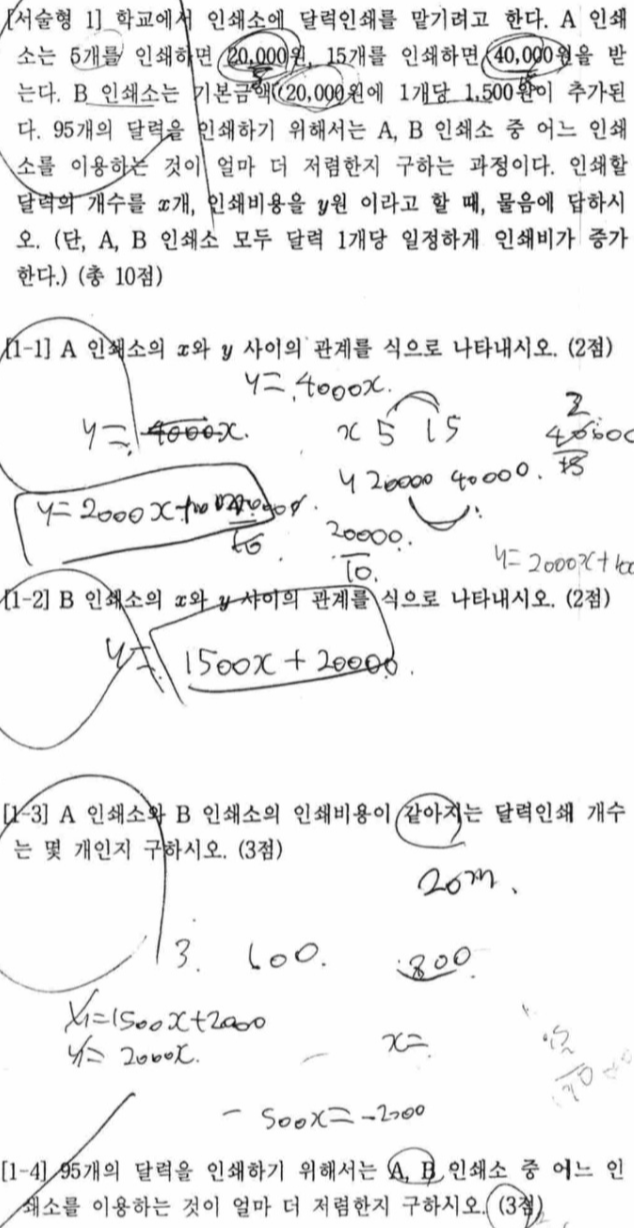 [서술형 1] 학교에서 인쇄소에 달력인쇄를 맡기려고 한다. A 인쇄
소는 5개를 인쇄하면 20,000원, 15개를 인쇄하면 40,000원을 받
는다. B 인쇄소는 기본금액(20,000원에 1개당 1,500원이 추가된
다. 95개의 달력을 인쇄하기 위해서는 A, B 인쇄소 중 어느 인쇄
소를 이용하는 것이 얼마 더 저렴한지 구하는 과정이다. 인쇄할
달력의 개수를 x개, 인쇄비용을 y원 이라고 할 때, 물음에 답하시
오. (단, A, B 인쇄소 모두 달력 1개당 일정하게 인쇄비가 증가
한다.) (총 10점)
[1-1] A 인쇄소의 x와 y 사이의 관계를 식으로 나타내시오. (2점)
y=4000x.
y= 4000x. x 5 15
y 20000 40000.
y=2000x+
20000
10.
[1-2] B 인쇄소의 x와 y 사이의 관계를 식으로 나타내시오. (2점)
y= 1500x+20000.
[1-3] A 인쇄소와 B 인쇄소의 인쇄비용이 같아지는 달력인쇄 개수
는 몇 개인지 구하시오. (3점)
3. 600. 800
y=1500x+2000
y= 2000x. x=
- 500x=-2000
[1-4] 95개의 달력을 인쇄하기 위해서는 A, B 인쇄소 중 어느 인
쇄소를 이용하는 것이 얼마 더 저렴한지 구하시오. (3점)